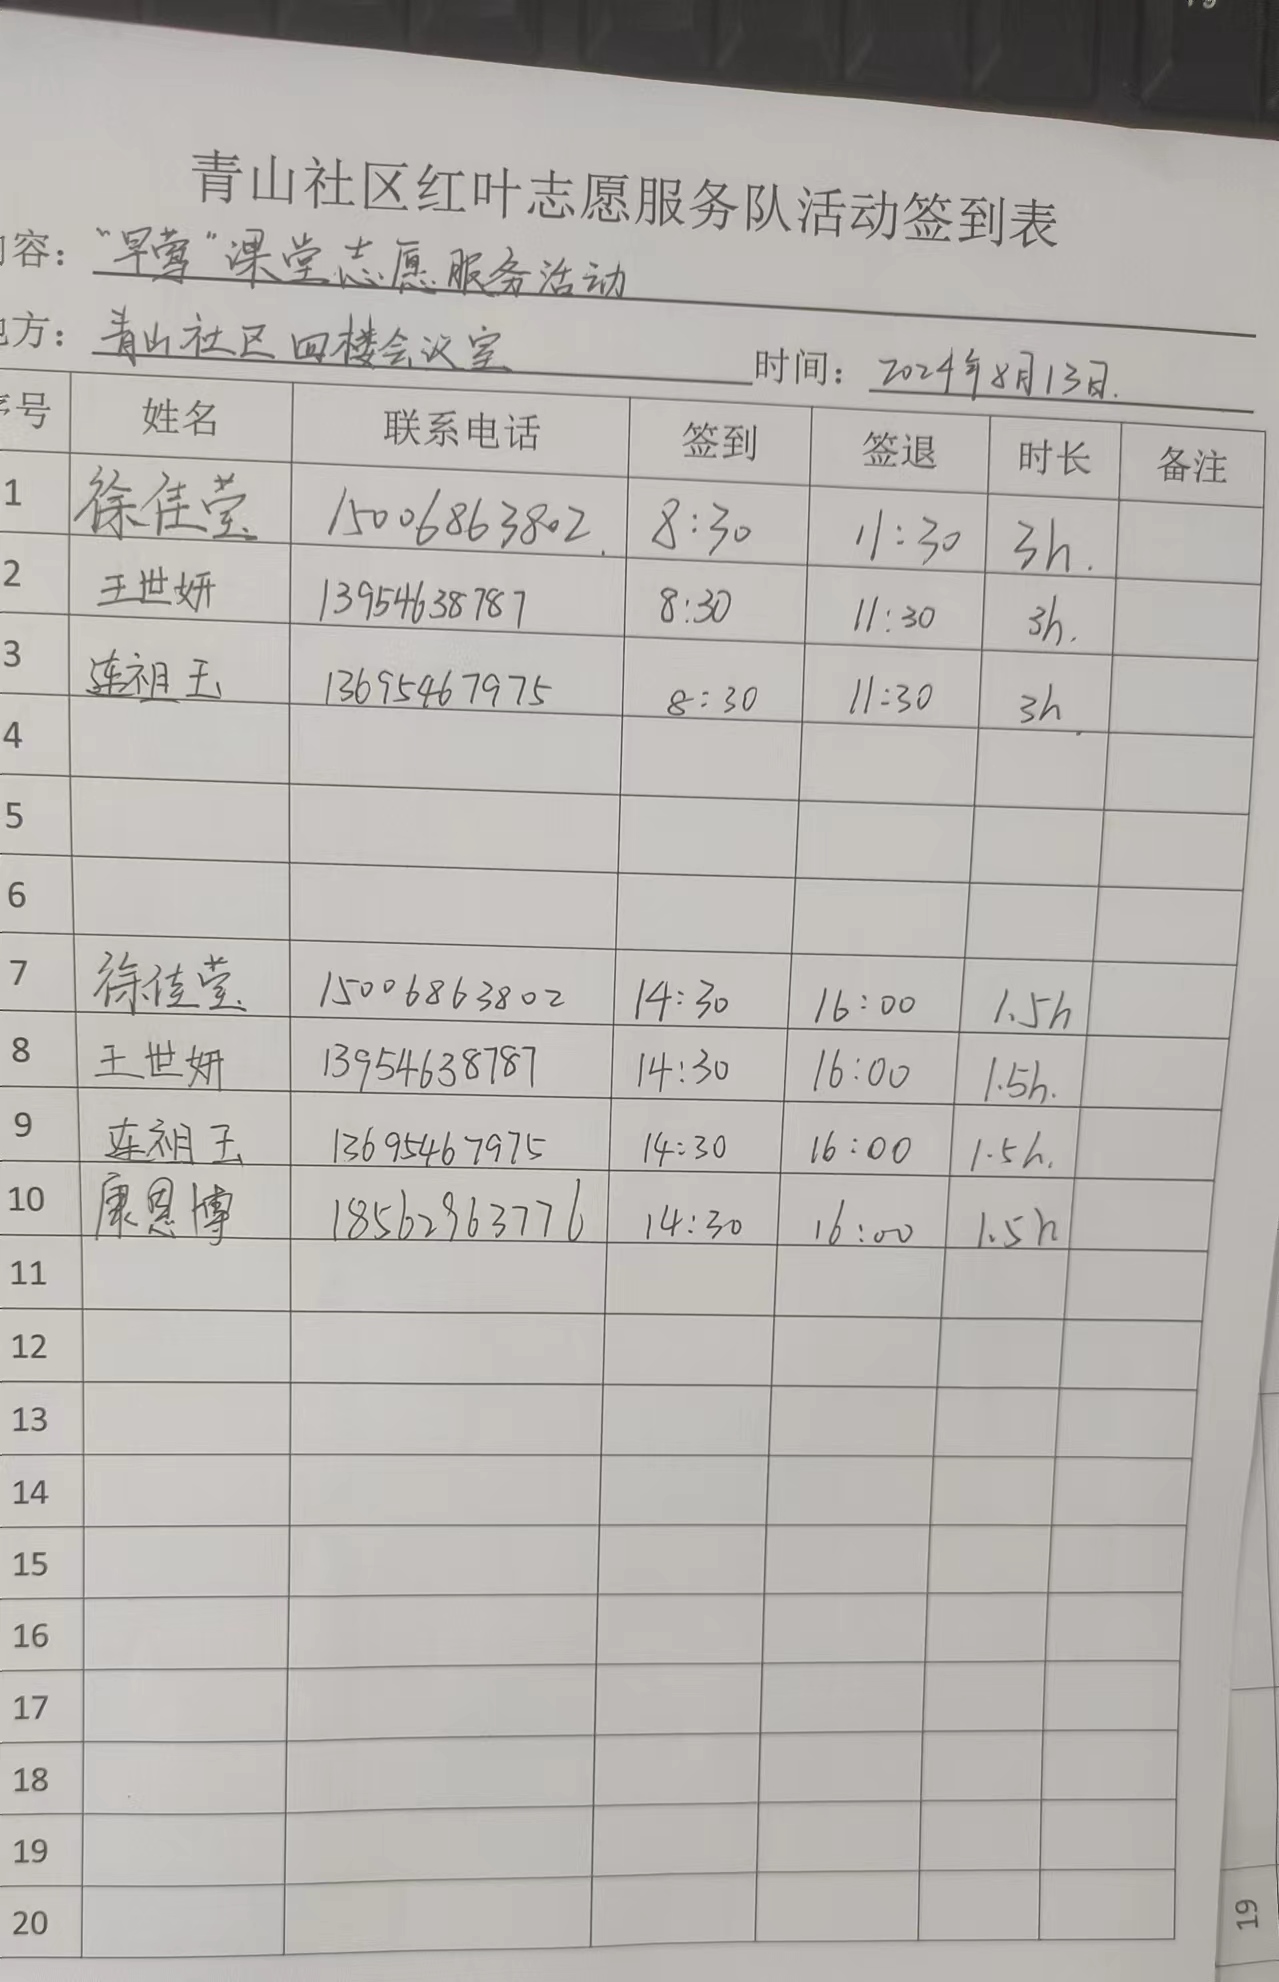 青山社区红叶志愿服务队活动签到表
容：“早莺”课堂志愿服务活动
方：青山社区四楼会议室 时间：2024年8月13日.
号 姓名 联系电话 签到 签退 时长 备注
1 徐佳莹 15006863802 8:30 11:30 3h.
2 王世妍 13954638787 8:30 11:30 3h.
3 连祖玉 13695467975 8:30 11:30 3h
4
5
6
7 徐佳莹 15006863802 14:30 16:00 1.5h
8 王世妍 13954638787 14:30 16:00 1.5h.
9 连祖玉 13695467975 14:30 16:00 1.5h.
10 康恩博 18562963776 14:30 16:00 1.5h
11
12
13
14
15
16
17
18
19
20
19